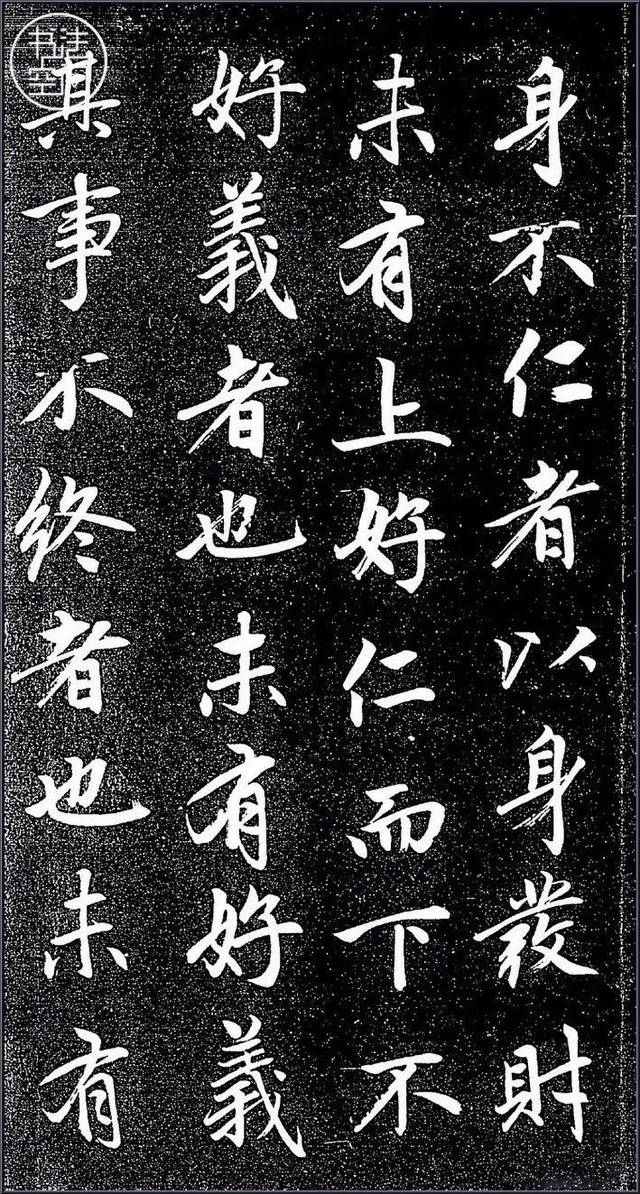 身不仁者以身發財
未有上好仁而下不
好義者也未有好義
其事不終者也未有
书法
空